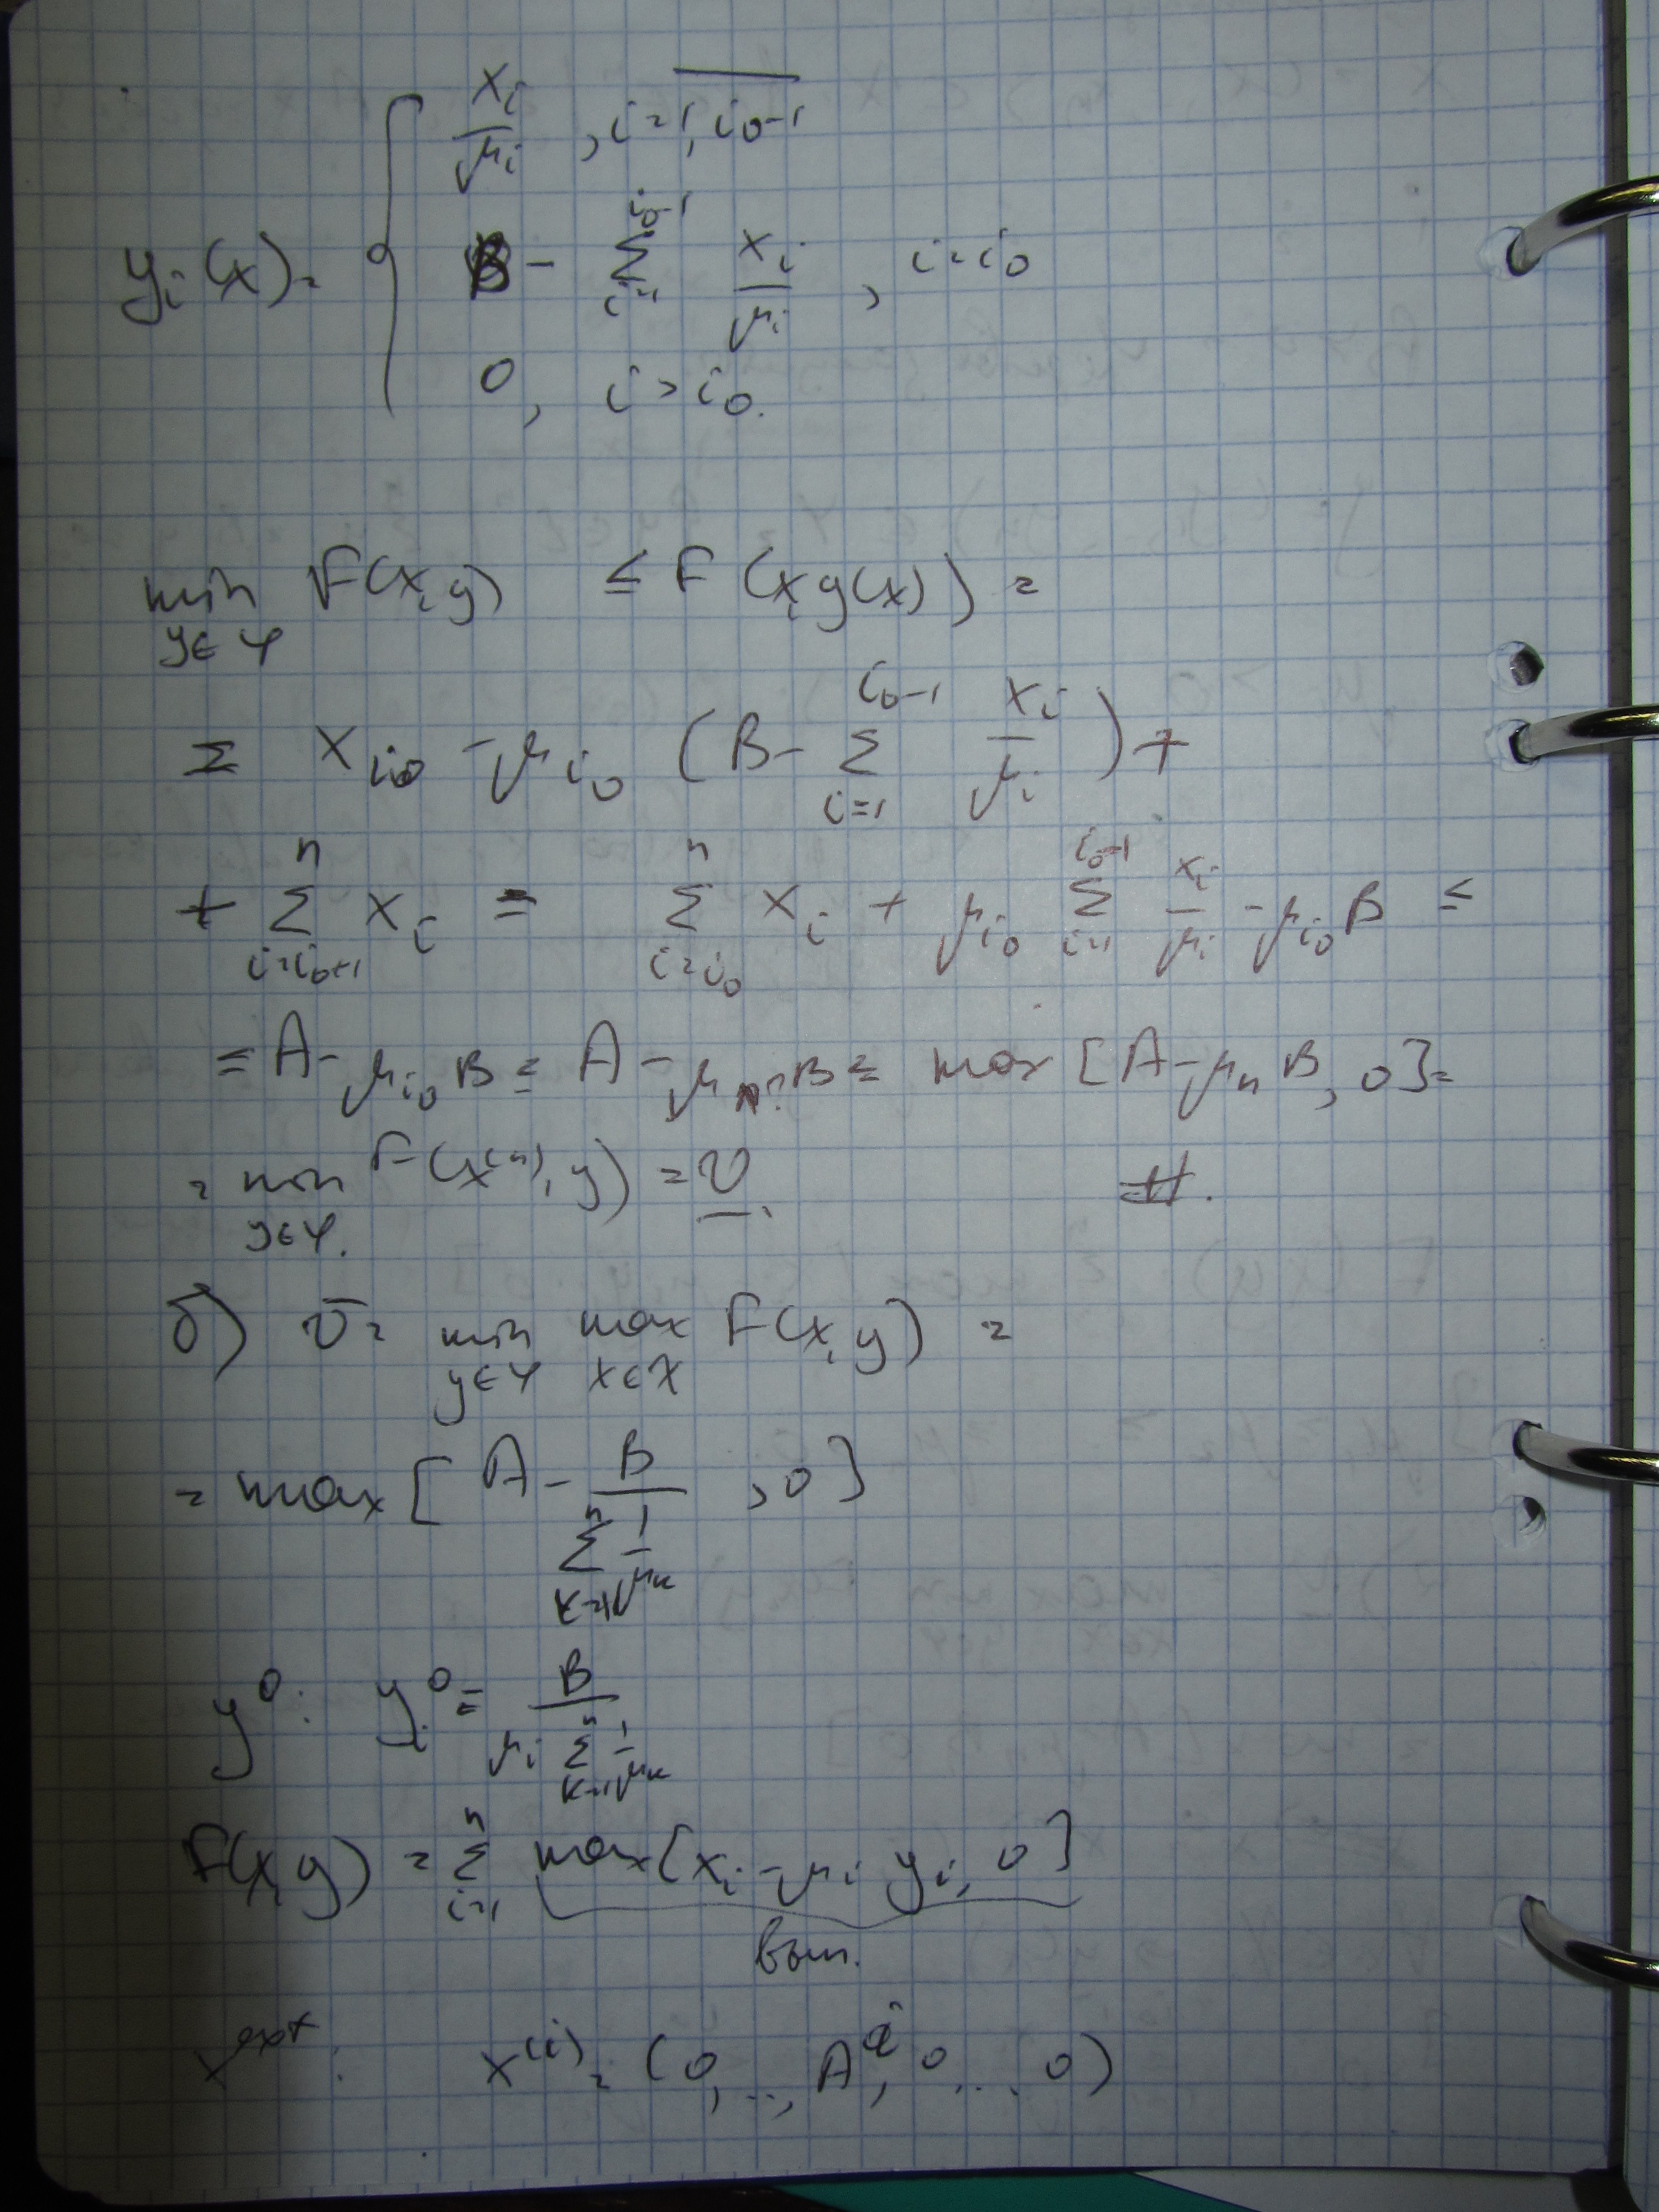 x_i / μ_i , i = \overline{1, i_0-1}
y_i(x) = { B - Σ_{i=1}^{i_0-1} x_i / μ_i , i = i_0
0, i > i_0.
min_{y∈Y} F(x,y) ≤ F(x,y(x)) =
= x_{i_0} - μ_{i_0} (B - Σ_{i=1}^{i_0-1} x_i / μ_i) +
+ Σ_{i=i_0+1}^{n} x_i = Σ_{i=i_0}^{n} x_i + μ_{i_0} Σ_{i=1}^{i_0-1} x_i / μ_i - μ_{i_0} B ≤
≤ A - μ_{i_0} B ≤ A - μ_n B ≤ max [A - μ_n B, 0] =
= min_{y∈Y} F(x^{(n)}, y) = \underline{v}. #.
б) \overline{v} = min_{y∈Y} max_{x∈X} F(x,y) =
= max [ A - B / Σ_{k=1}^{n} 1/μ_k , 0 ]
y^0: y_i^0 = B / (μ_i Σ_{k=1}^{n} 1/μ_k)
F(x,y) = Σ_{i=1}^{n} max[x_i - μ_i y_i, 0]
вып.
x^{ext}: x^{(i)} = (0, .., A^i, 0, .. 0)